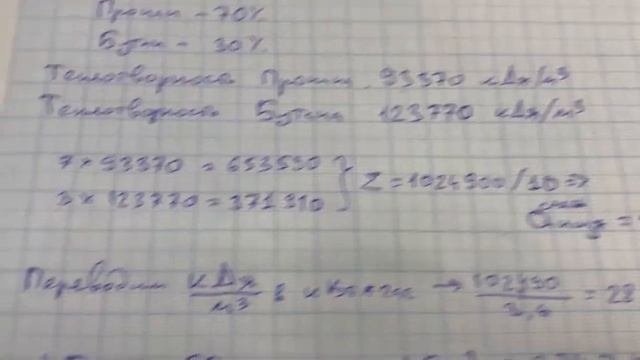 Пропан - 70%
Бутан - 30%
Теплотворность Пропана 93370 кДж/м³
Теплотворность Бутана 123770 кДж/м³
7 × 93370 = 653590 } Σ = 1024900/10 =>
3 × 123770 = 371310
Переводим кДж/м³ в → 102490/3,6 = 28